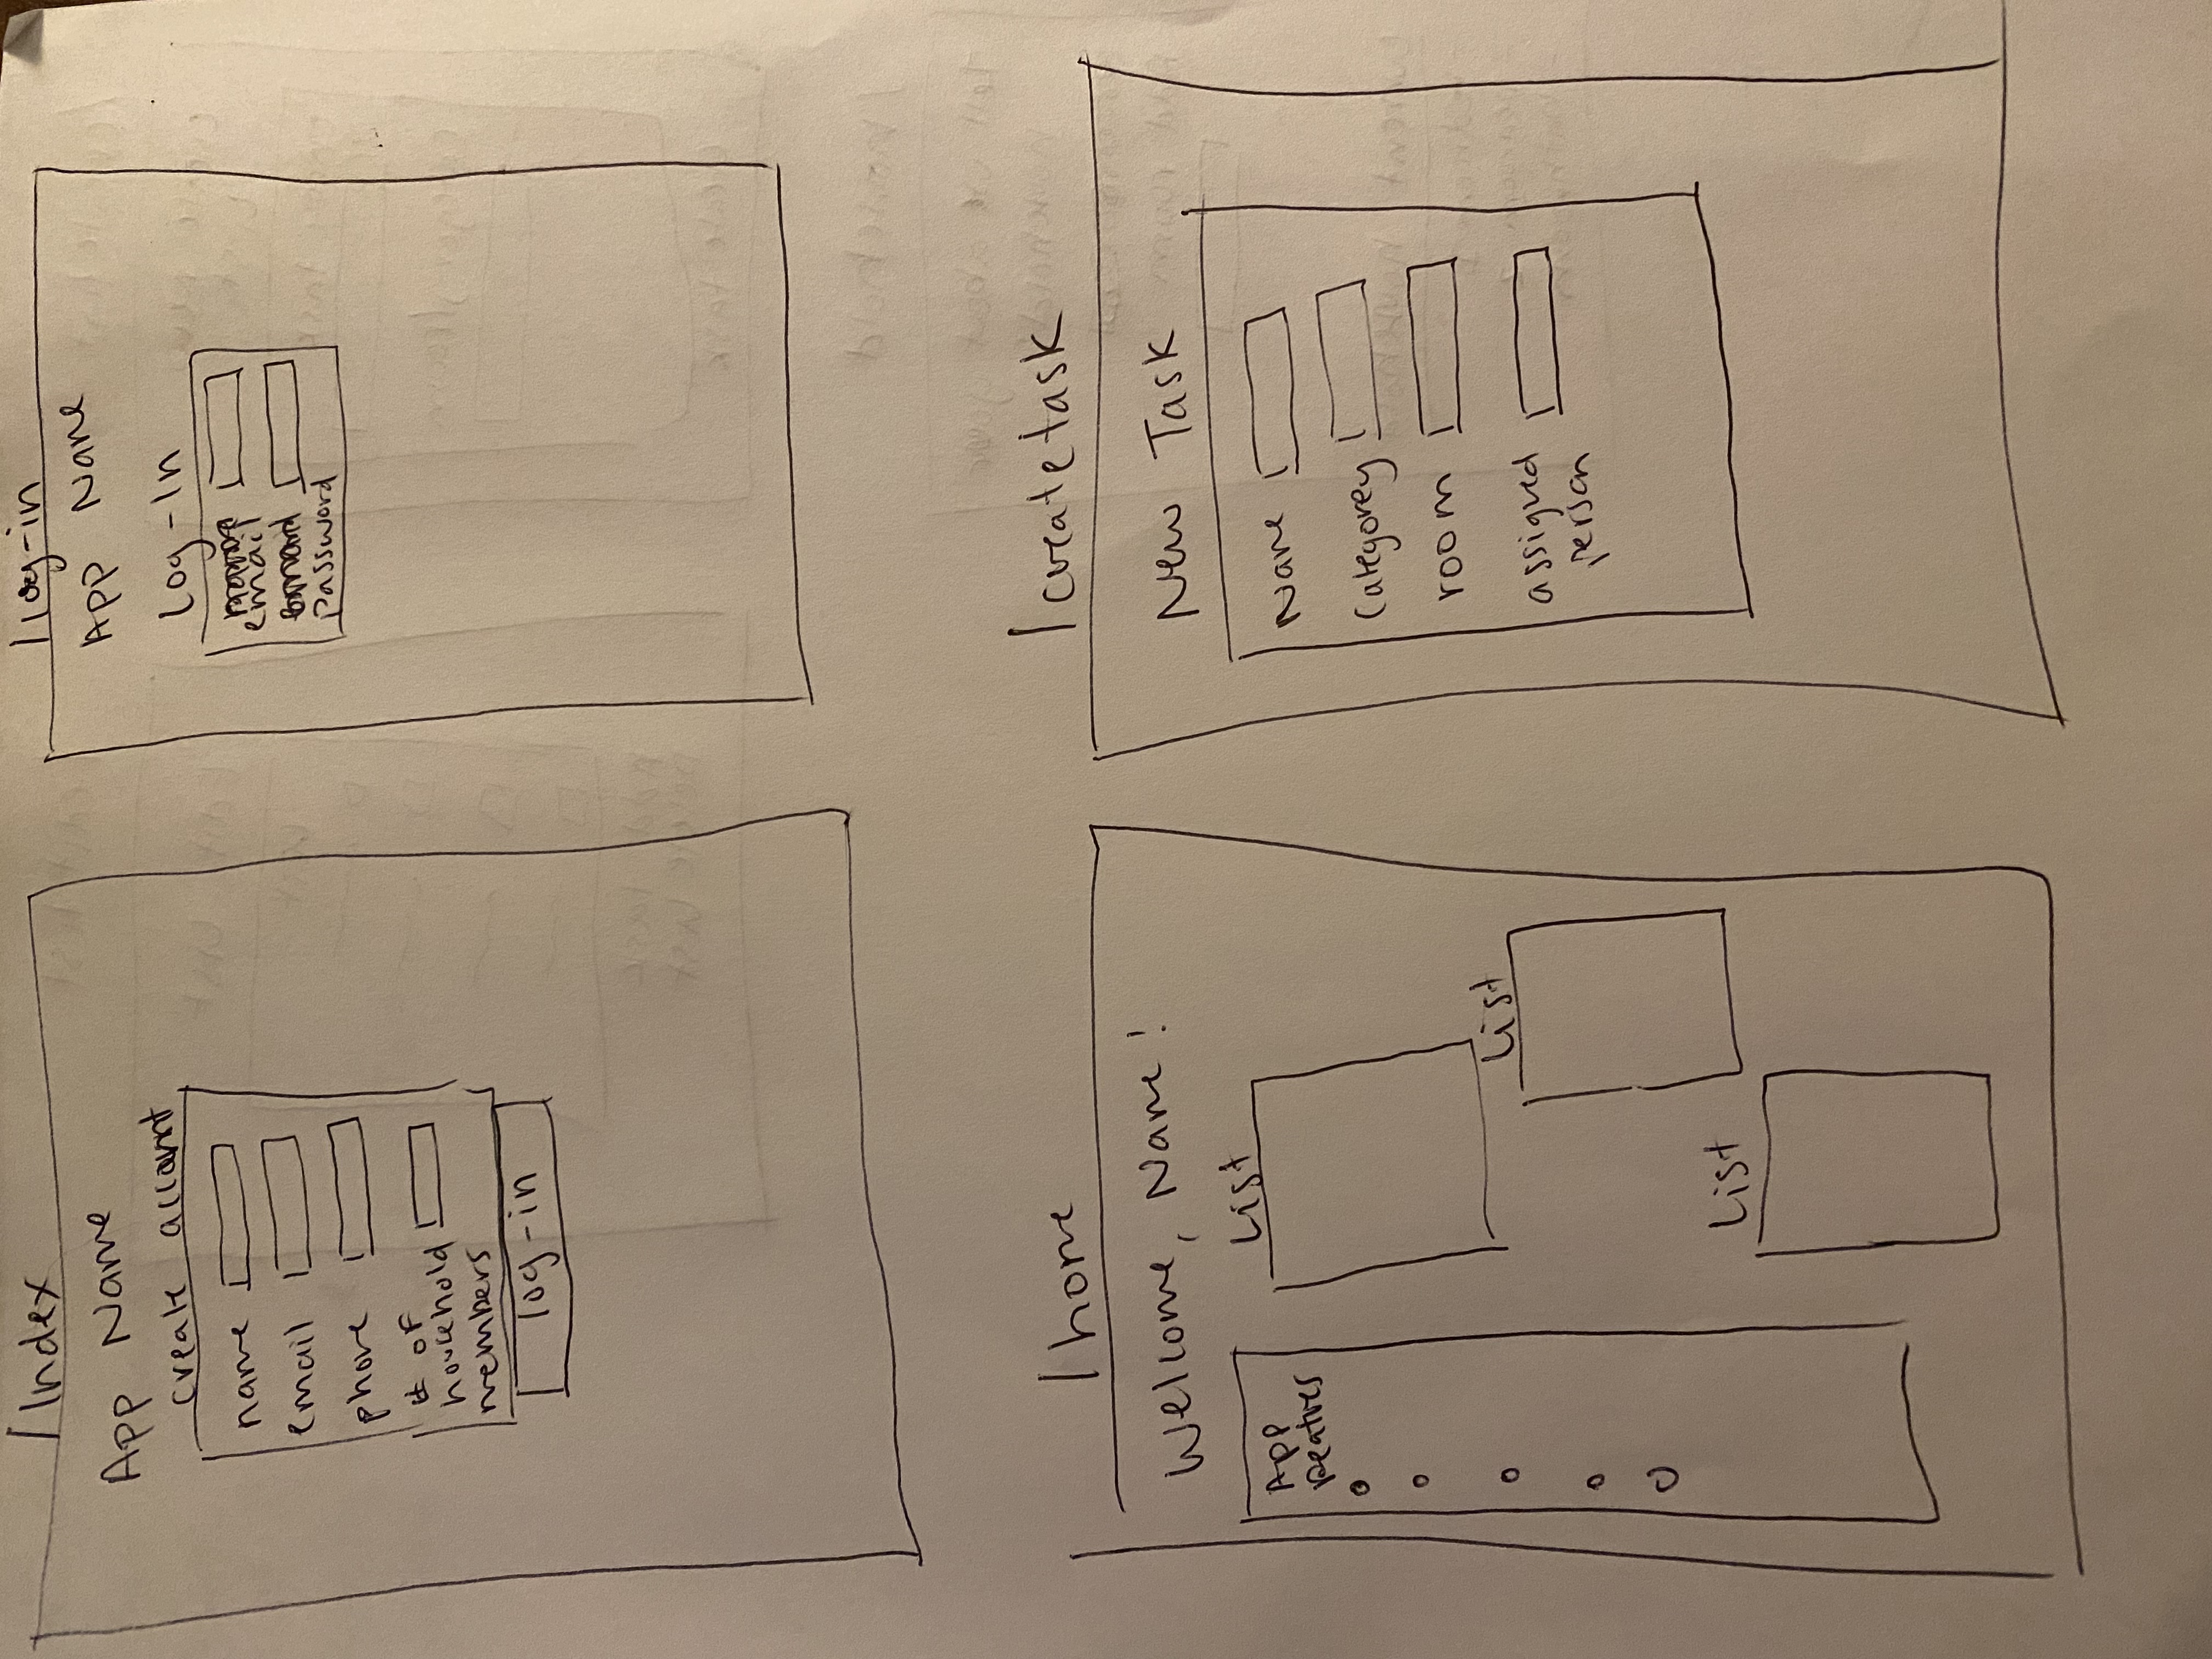 /Index
App Name
create account
name
email
phone
# of
household
members
log-in
/log-in
App Name
Log-In
email
password
/home
Welcome, Name!
App
Featres
List
List
List
/createtask
New Task
Name
Categorey
room
assigned
person